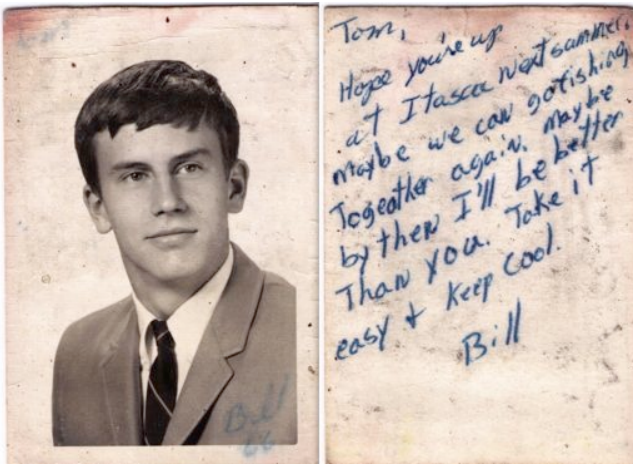 Bill
66
Tom,
Hope you're up
at Itasca next summer.
maybe we can go fishing
Together again. maybe
by then I'll be better
Than you. Take it
easy + Keep Cool.
Bill